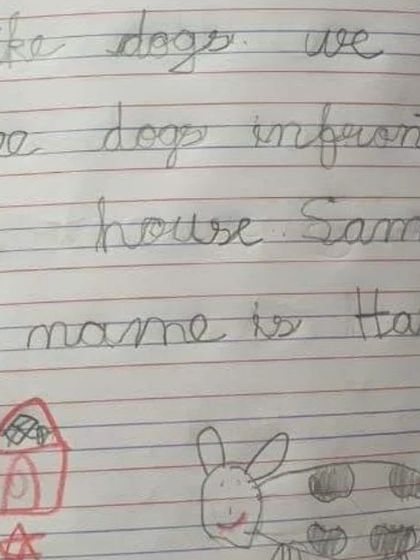 ke dogs. we
dogs infron
house. Sam
name is Ha